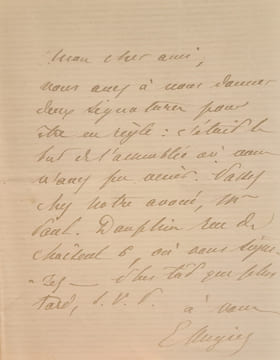 mon cher ami,
vous avez à nous donner
deux signatures pour
être en règle : c'était le
but de l'assemblée où vous
n'avez pu venir. Passez
chez notre avoué, Mr
Dauphin rue du
6, où vous signe-
rez — plus tôt que plus
tard, S. V. P.
à vous
E Augier